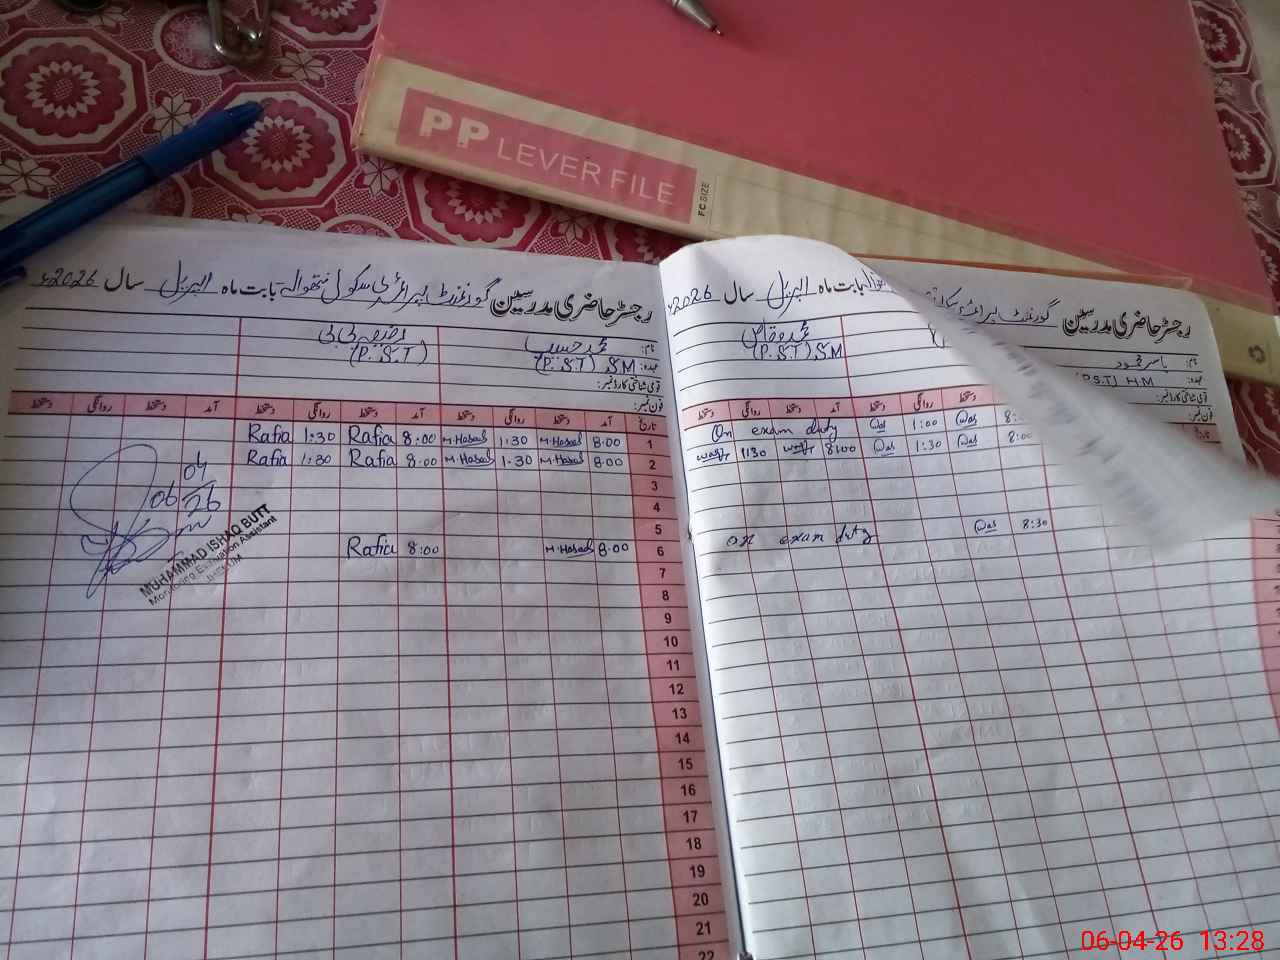 PP LEVER FILE
FC SIZE
رجسٹر حاضری مدرسین گورنمنٹ پرائمری سکول نتھوالہ بابت ماہ اپریل سال 2026ء
نام: محمد حسیب
رضیہ بی بی
عہدہ: (P.S.T) SM
(P.S.T)
قومی شناختی کارڈ نمبر:
فون نمبر:
تاریخ آمد دستخط روانگی دستخط آمد دستخط روانگی دستخط آمد دستخط روانگی دستخط
Rafia 1:30 Rafia 8:00 M.Haseeb 1:30 M.Haseeb 8:00 1
Rafia 1:30 Rafia 8:00 M.Haseeb 1:30 M.Haseeb 8:00 2
3
4
5
Rafia 8:00 M.Haseeb 8:00 6
7
8
9
10
11
12
13
14
15
16
17
18
19
20
21
22
06/04/26
MUHAMMAD ISHAQ BUTT
Monitoring Evaluation Assistant
رجسٹر حاضری مدرسین گورنمنٹ پرائمری بابت ماہ اپریل سال 2026ء
نام: یاسر محمود
محمد وقاص
عہدہ: (P.S.T) HM
(P.S.T) SM
قومی شناختی کارڈ نمبر:
فون نمبر:
دستخط روانگی دستخط آمد دستخط روانگی دستخط
On exam duty 1:00 8:
1:30 8:00 1:30 8:00
on exam duty 8:30
06-04-26 13:28